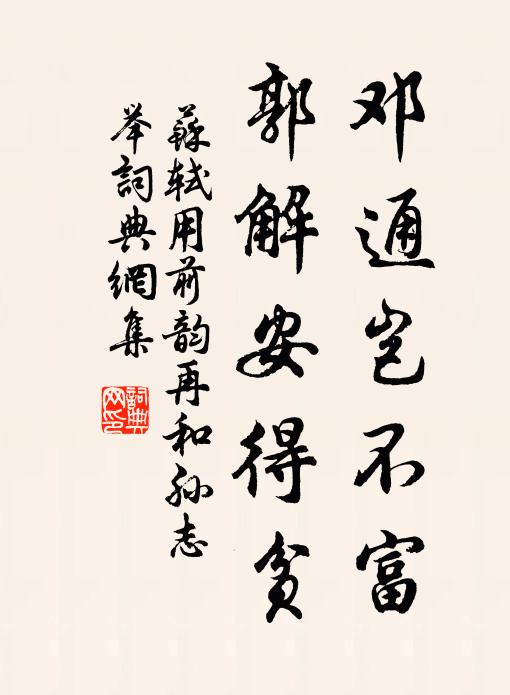 邓通岂不富
郭解安得贫
蘇轼用前韵再和孙志
举詞典網集
詞典
网印